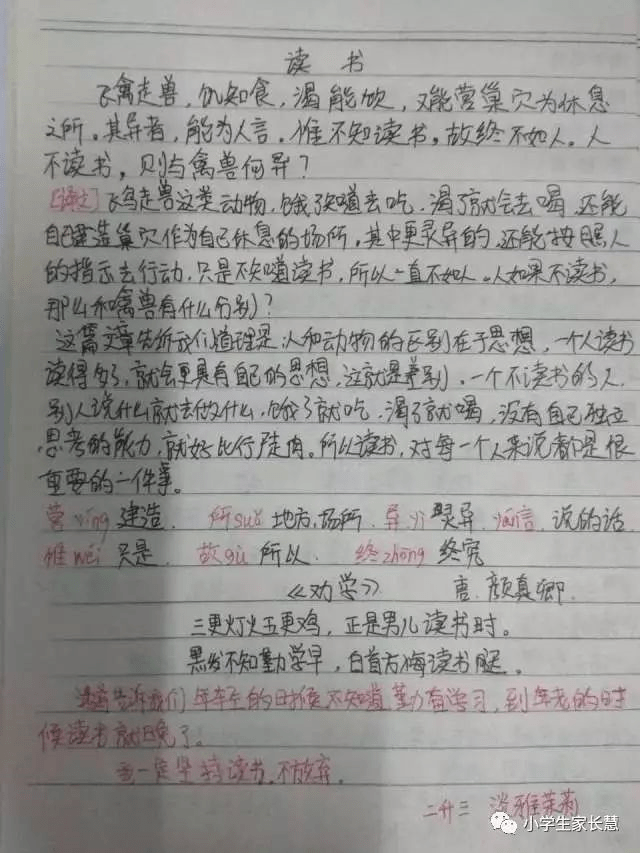 读书
飞禽走兽，饥知食，渴能饮，又能营巢穴为休息
之所。其异者，能为人言。惟不知读书，故终不如人。人
不读书，则与禽兽何异？
[译文]飞鸟走兽这类动物，饿了知道去吃，渴了就会去喝，还能
自己建造巢穴作为自己休息的场所，其中更灵异的，还能按照人
的指示去行动，只是不知道读书，所以一直不如人。人如果不读书，
那么和禽兽有什么分别？
这篇文章告诉我们道理是人和动物的区别在于思想，一个人读书
读得多，就会更具有自己的思想，这就是差别，一个不读书的人，
别人说什么就去做什么，饿了就吃，渴了就喝，没有自己独立
思考的能力，就好比行尸走肉。所以读书，对每一个人来说都是很
重要的一件事。
营ying 建造. 所suǒ 地方、场所. 异yì 灵异. 说的话.
惟wéi 只是. 故gù 所以. 终zhōng 终究
《劝学》 唐.颜真卿.
三更灯火五更鸡，正是男儿读书时。
黑发不知勤学早，白首方悔读书迟。
告诉我们年轻的时候不知道勤奋学习，到年老的时
候读书就晚了。
我一定坚持读书，不放弃.
二升三
小学生家长慧